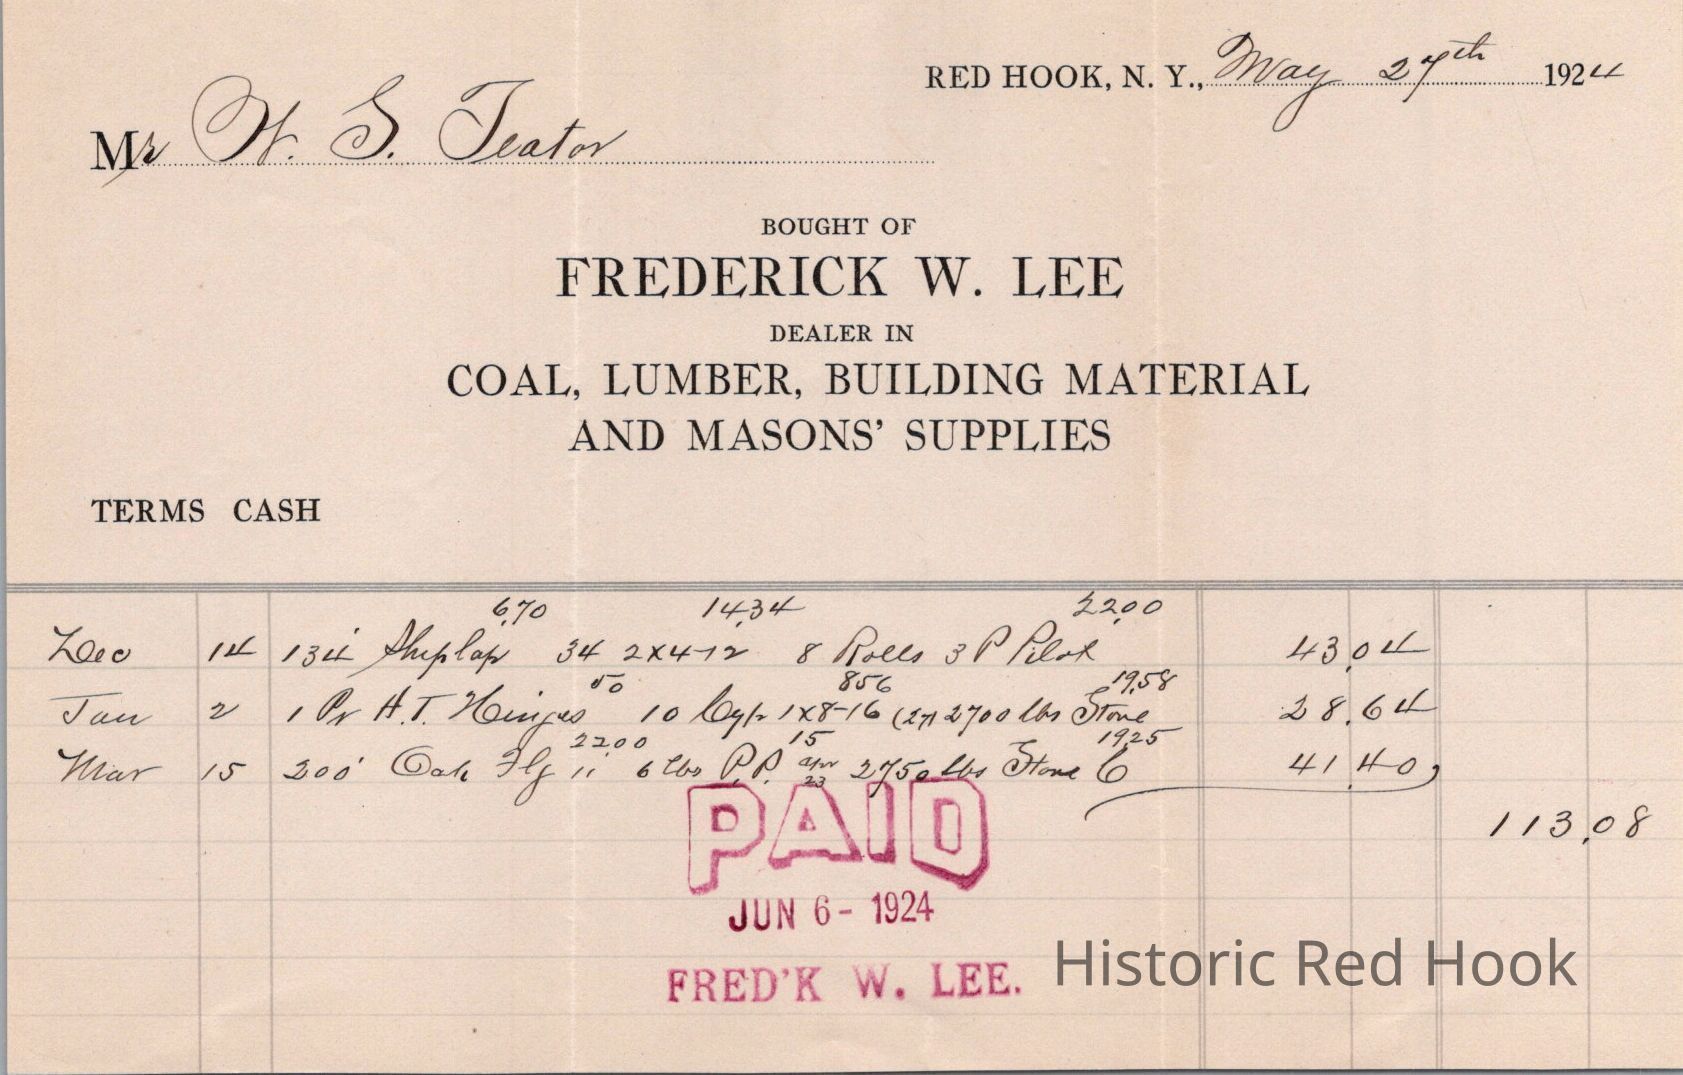 RED HOOK, N. Y., May 27th 1924
Mr W. S. Teator
BOUGHT OF
FREDERICK W. LEE
DEALER IN
COAL, LUMBER, BUILDING MATERIAL
AND MASONS' SUPPLIES
TERMS CASH
6.70 14.34 22.00
Dec 14 134' Shiplap 34 2x4-12 8 Rolls 3 P Pilot 43.04
50 856 19.58
Jan 2 1 Pr H.T. Hinges 10 Cyp 1x8-16 (27) 2700 lbs Stone 28.64
2200 15 19.25
Mar 15 200' Oak Flg 6 lbs P.P. Apr 23 2750 lbs Stone C 41.40
113.08
PAID
JUN 6 - 1924
FRED'K W. LEE.
Historic Red Hook